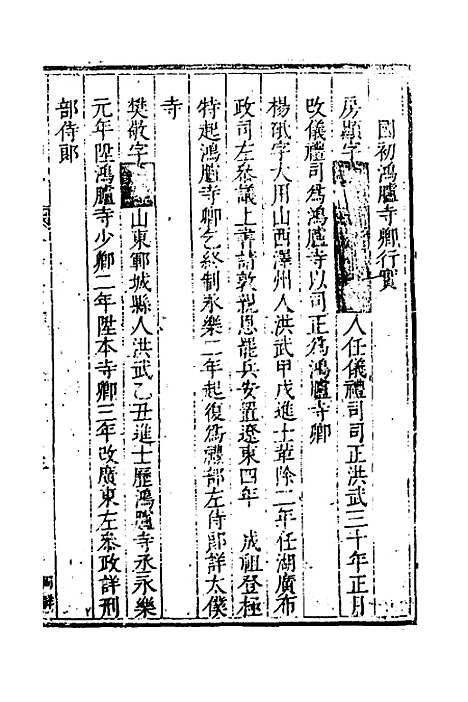 國初鴻臚寺卿行實
房顯字 人任儀禮司司正洪武三十年正月
改儀禮司爲鴻臚寺以司正爲鴻臚寺卿
楊砥字大用山西澤州人洪武甲戌進士革除二年任湖廣布
政司左叅議上書請敦親恩罷兵安置遼東四年 成祖登極
特起鴻臚寺卿乞終制永樂二年起復爲禮部左侍郎詳太僕
寺
樊敬字 山東鄆城縣人洪武乙丑進士歷鴻臚寺丞永樂
元年陞鴻臚寺少卿二年陞本寺卿三年改廣東左叅政詳刑
部侍郎